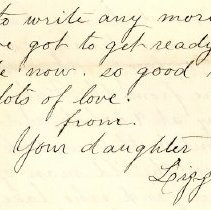 to write any mor
got to get ready
now. so good
lots of love.
from.
Your daughter